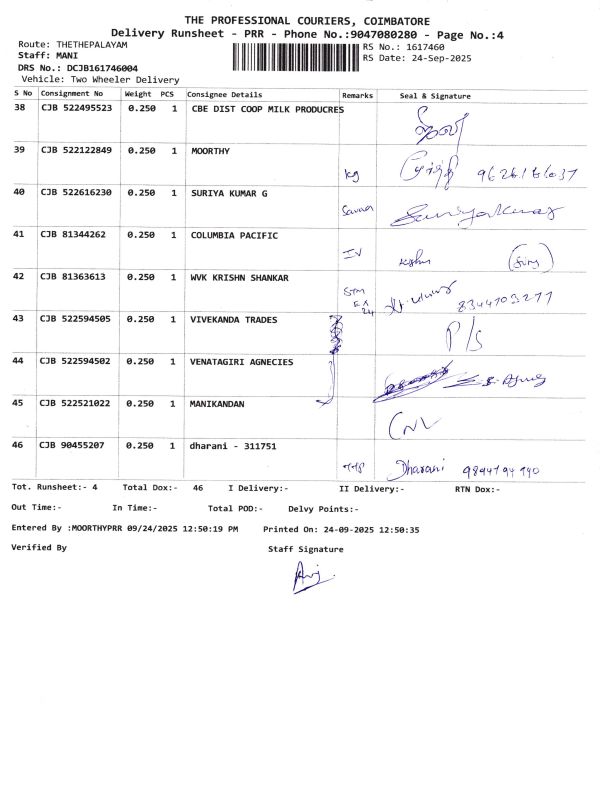 THE PROFESSIONAL COURIERS, COIMBATORE
Delivery Runsheet - PRR - Phone No.:9047080280 - Page No.:4
Route: THETHEPALAYAM
RS No.: 1617460
Staff: MANI
RS Date: 24-Sep-2025
DRS No.: DCJB161746004
Vehicle: Two Wheeler Delivery
S No Consignment No Weight PCS Consignee Details Remarks Seal & Signature
38 CJB 522495523 0.250 1 CBE DIST COOP MILK PRODUCRES
39 CJB 522122849 0.250 1 MOORTHY
kg
40 CJB 522616230 0.250 1 SURIYA KUMAR G
Suriyakumar
41 CJB 81344262 0.250 1 COLUMBIA PACIFIC
IV
42 CJB 81363613 0.250 1 WVK KRISHN SHANKAR
8344703277
43 CJB 522594505 0.250 1 VIVEKANDA TRADES
P/S
44 CJB 522594502 0.250 1 VENATAGIRI AGNECIES
45 CJB 522521022 0.250 1 MANIKANDAN
46 CJB 90455207 0.250 1 dharani - 311751
Dharani 9894794740
Tot. Runsheet:- 4 Total Dox:- 46 I Delivery:- II Delivery:- RTN Dox:-
Out Time:- In Time:- Total POD:- Delvy Points:-
Entered By :MOORTHYPRR 09/24/2025 12:50:19 PM Printed On: 24-09-2025 12:50:35
Verified By Staff Signature